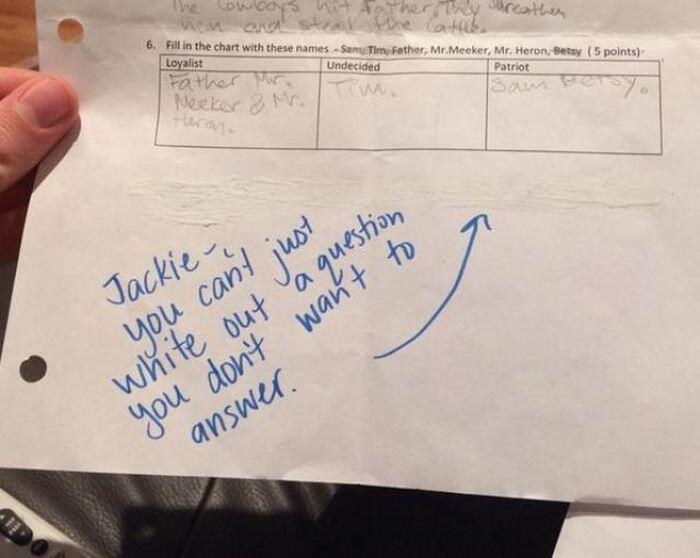 The Cowboys hit Father, They threathen
him and steal the Cattle.
6. Fill in the chart with these names - Sam, Tim, Father, Mr.Meeker, Mr. Heron, Betsy ( 5 points)
Loyalist Undecided Patriot
Father Mr. Tim. Sam Betsy.
Meeker & Mr.
Heron.
Jackie -
you can't just
white out a question
you don't want to
answer.